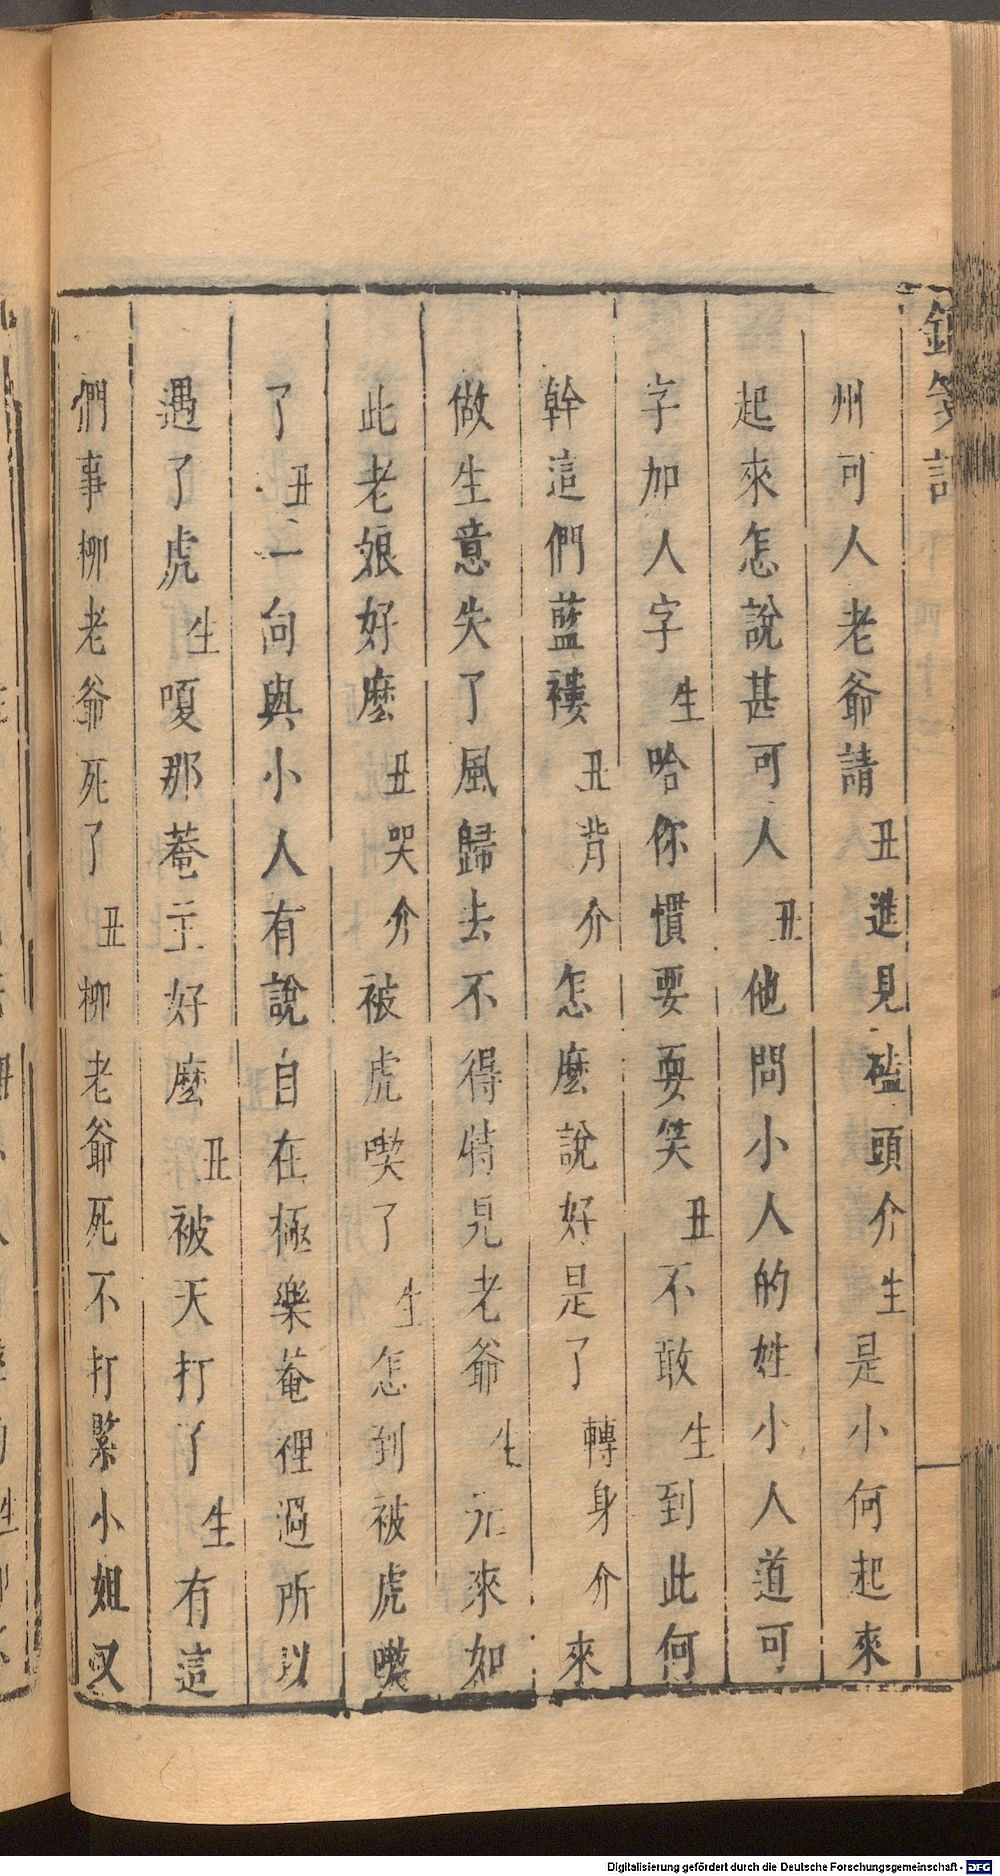 州可人老爺請丑進見磕頭介生是小何起來
起來怎說甚可人丑他問小人的姓小人道可
字加人字生哈你慣要耍笑丑不敢生到此何
幹這們藍褸丑背介怎麼說好是了轉身介來
做生意失了風歸去不得特見老爺生元來如
此老娘好麼丑哭介被虎喫了生怎到被虎喫
了丑一向與小人有說自在極樂菴裡過所以
遇了虎生嗄那菴主好麼丑被天打了生有這
們事柳老爺死了丑柳老爺死不打緊小姐又
Digitalisierung gefördert durch die Deutsche Forschungsgemeinschaft - DFG